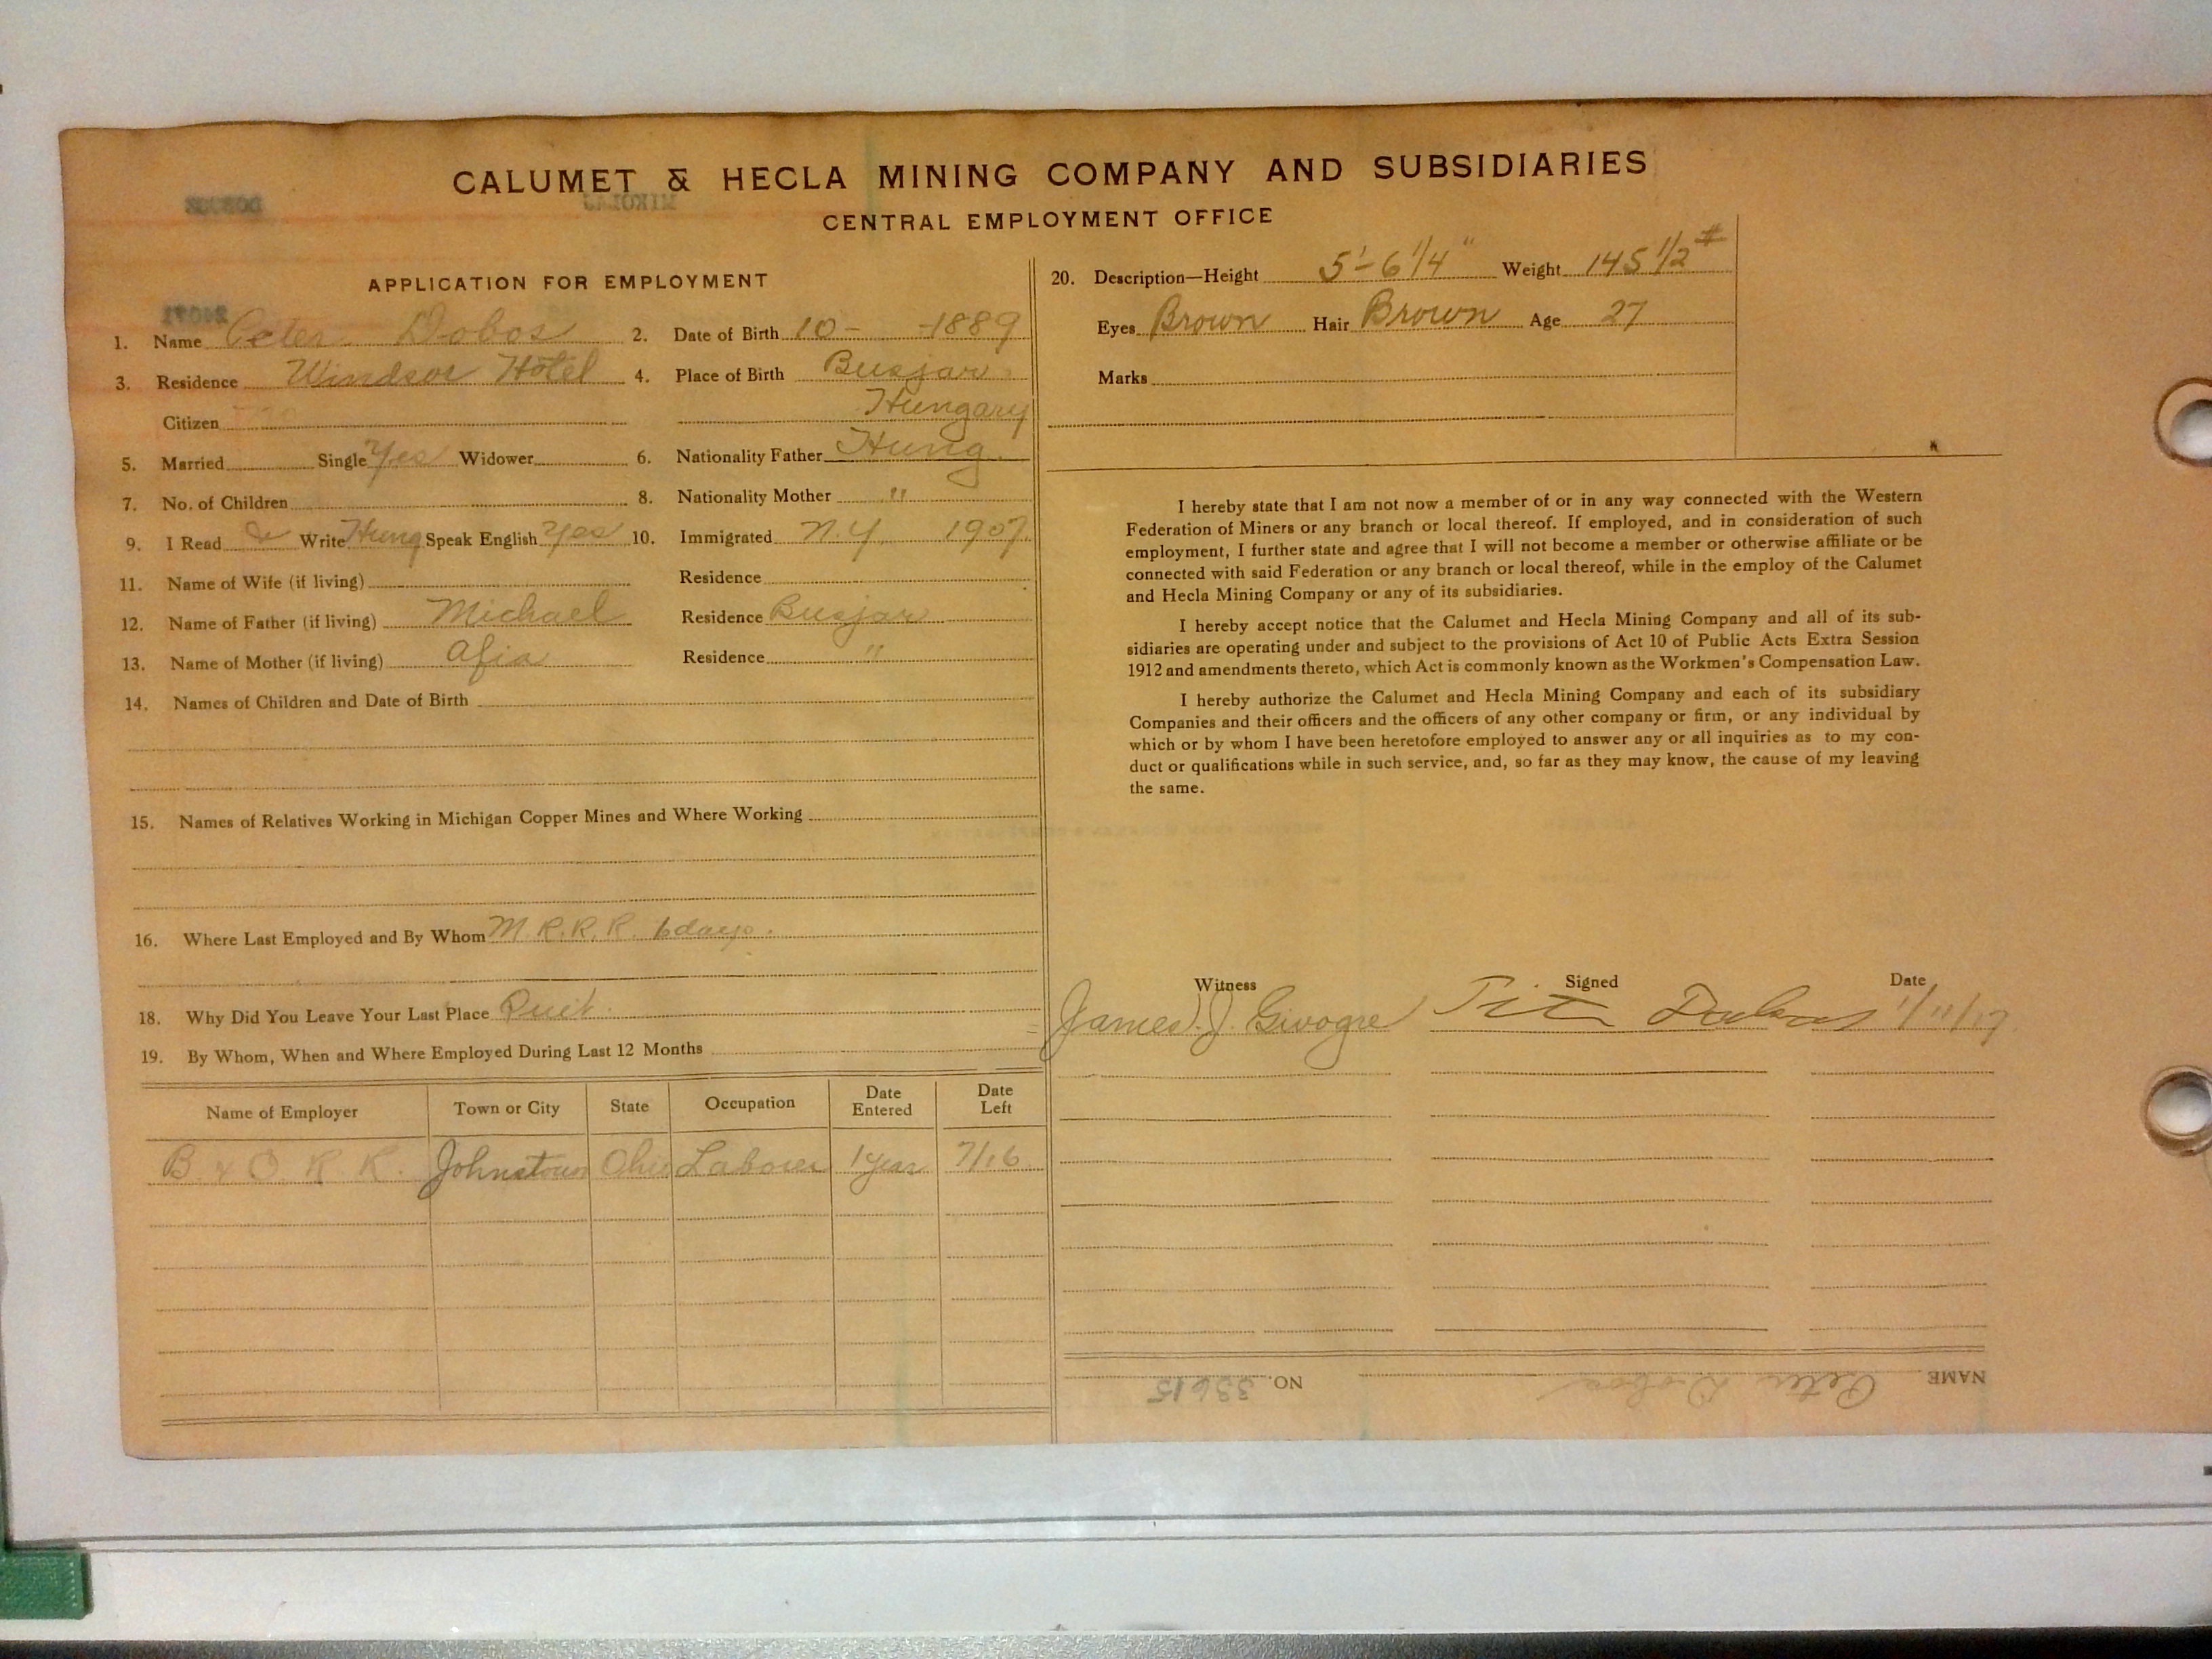 CALUMET & HECLA MINING COMPANY AND SUBSIDIARIES
CENTRAL EMPLOYMENT OFFICE
APPLICATION FOR EMPLOYMENT
1. Name Peter Dobos 2. Date of Birth 10- -1889
3. Residence Windsor Hotel 4. Place of Birth Busjar
Citizen no Hungary
5. Married Single Yes Widower 6. Nationality Father Hung.
7. No. of Children 8. Nationality Mother "
9. I Read & Write Hung Speak English Yes 10. Immigrated N.Y. 1907
11. Name of Wife (if living) Residence
12. Name of Father (if living) Michael Residence Busjar
13. Name of Mother (if living) Afia Residence "
14. Names of Children and Date of Birth
15. Names of Relatives Working in Michigan Copper Mines and Where Working
16. Where Last Employed and By Whom M.R.R.R. 6 days.
18. Why Did You Leave Your Last Place Quit.
19. By Whom, When and Where Employed During Last 12 Months
Name of Employer Town or City State Occupation Date Entered Date Left
B. & O. R. R. Johnstown Ohio Laborer 1 year 7/16
20. Description—Height 5'-6 1/4" Weight 145 1/2 #
Eyes Brown Hair Brown Age 27
Marks
I hereby state that I am not now a member of or in any way connected with the Western
Federation of Miners or any branch or local thereof. If employed, and in consideration of such
employment, I further state and agree that I will not become a member or otherwise affiliate or be
connected with said Federation or any branch or local thereof, while in the employ of the Calumet
and Hecla Mining Company or any of its subsidiaries.
I hereby accept notice that the Calumet and Hecla Mining Company and all of its sub-
sidiaries are operating under and subject to the provisions of Act 10 of Public Acts Extra Session
1912 and amendments thereto, which Act is commonly known as the Workmen's Compensation Law.
I hereby authorize the Calumet and Hecla Mining Company and each of its subsidiary
Companies and their officers and the officers of any other company or firm, or any individual by
which or by whom I have been heretofore employed to answer any or all inquiries as to my con-
duct or qualifications while in such service, and, so far as they may know, the cause of my leaving
the same.
Witness Signed Date
James J. Givogre 1/11/17
NAME Peter Dobos NO. 33615